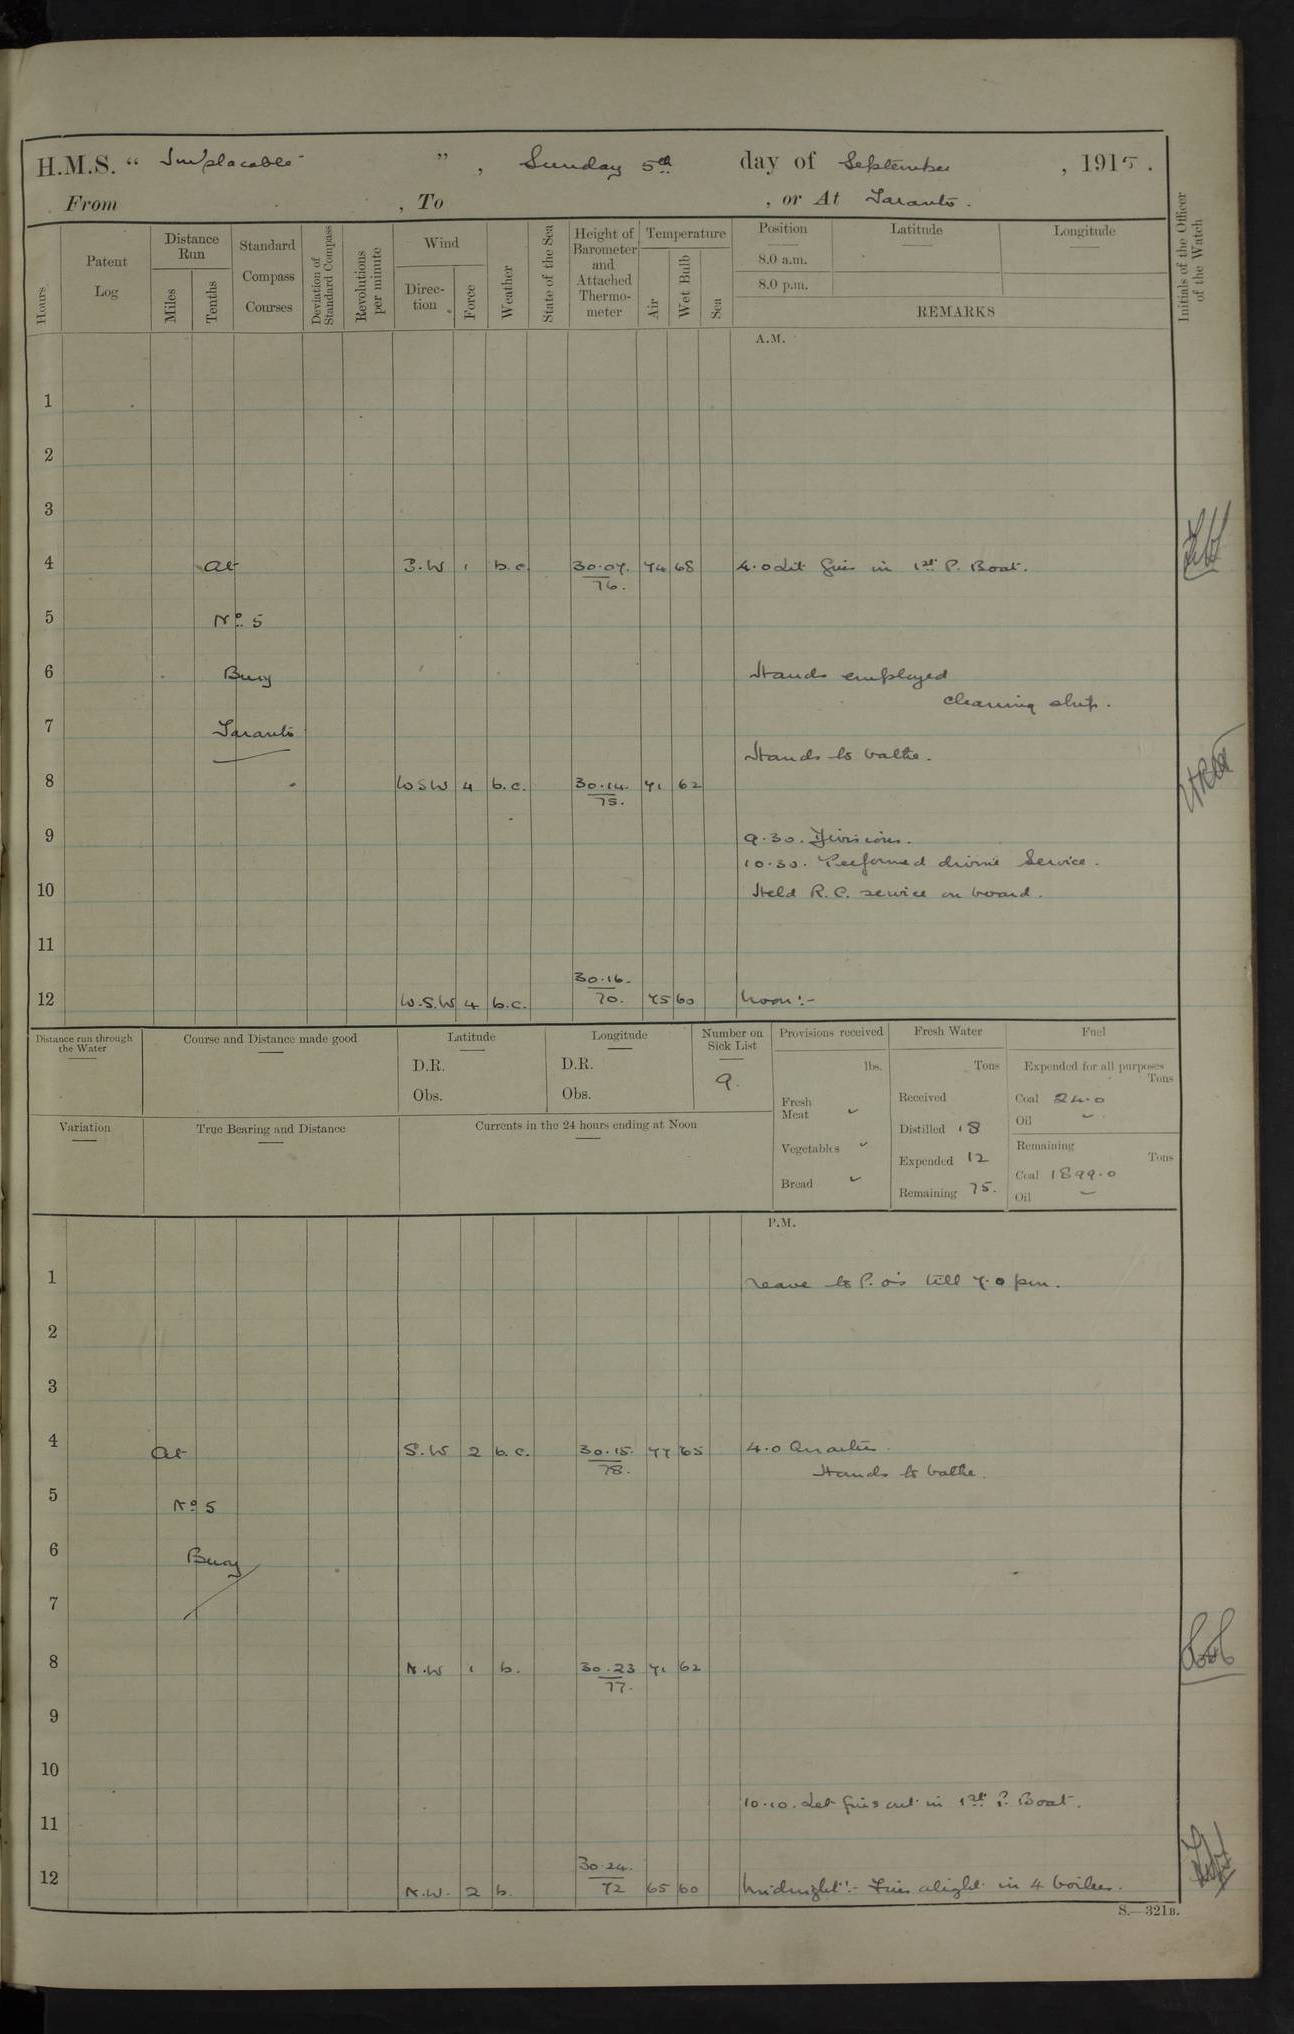 H.M.S. " Implacable ", Sunday 5th day of September, 1915.
From , To , or At Taranto.
Hours
Patent Log
Distance Run
Miles
Tenths
Standard Compass Courses
Deviation of Standard Compass
Revolutions per minute
Wind
Direction
Force
Weather
State of the Sea
Height of Barometer and Attached Thermometer
Temperature
Air
Wet Bulb
Sea
Position
8.0 a.m.
8.0 p.m.
Latitude
Longitude
REMARKS
Initials of the Officer of the Watch
A.M.
1
2
3
4 At S.W 1 b.c. 30.07. 76. 74 68 4.0 Lit fires in 1st P. Boat.
5 No. 5
6 Buoy Hands employed
cleaning ship.
7 Taranto
Hands to bathe.
8 WSW 4 b.c. 30.14. 75. 71 62
9 9.30. Divisions.
10.30. Performed divine Service.
10 Held R.C. service on board.
11
12 W.S.W 4 b.c. 30.16. 70. 75 60 Noon:-
Distance run through the Water
Course and Distance made good
Latitude
D.R.
Obs.
Longitude
D.R.
Obs.
Number on Sick List
9.
Provisions received
lbs.
Fresh Meat
Vegetables
Bread
Fresh Water
Tons
Received
Distilled 18
Expended 12
Remaining 75.
Fuel
Expended for all purposes
Tons
Coal 24.0
Oil
Remaining
Tons
Coal 1899.0
Oil
Variation
True Bearing and Distance
Currents in the 24 hours ending at Noon
P.M.
1 Leave to P.O's till 7.0 pm.
2
3
4 At S.W 2 b.c. 30.15. 78. 77 65 4.0 Quarters.
Hands to bathe.
5 No. 5
6 Buoy
7
8 N.W 1 b. 30.23 77. 71 62
9
10
10.10. Let fires out in 1st P. Boat.
11
12 N.W. 2 b. 30.24. 72 65 60 Midnight:- Fires alight in 4 boilers.
S.—321B.